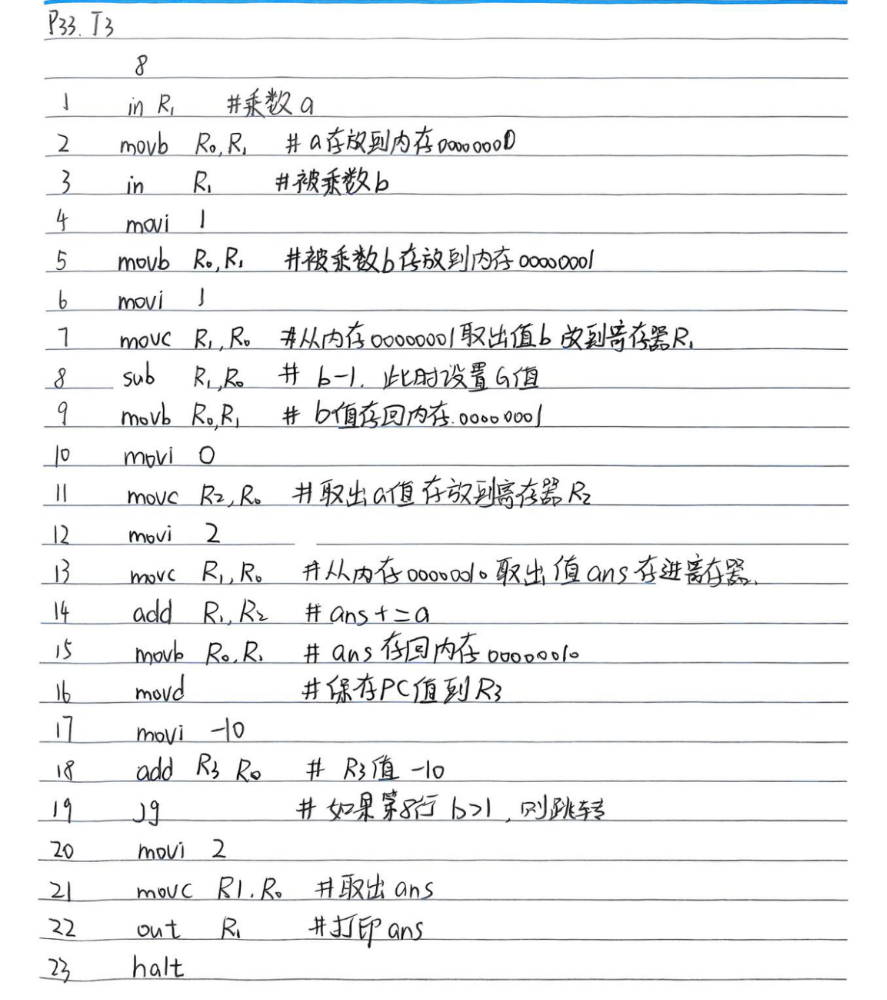 P33. T3
8
1 in R₁ #乘数a
2 movb R₀,R₁ #a存放到内存00000000
3 in R₁ #被乘数b
4 movi 1
5 movb R₀,R₁ #被乘数b存放到内存00000001
6 movi 1
7 movc R₁,R₀ #从内存00000001取出值b放到寄存器R₁
8 sub R₁,R₀ # b-1. 此时设置G值
9 movb R₀,R₁ # b值存回内存.00000001
10 movi 0
11 movc R2,R₀ #取出a值存放到寄存器R₂
12 movi 2
13 movc R₁,R₀ #从内存00000010取出值ans存进寄存器.
14 add R₁,R₂ # ans+=a
15 movb R₀,R₁ # ans存回内存00000010
16 movd #保存PC值到R3
17 movi -10
18 add R3 R₀ # R3值 -10
19 jg # 如果第8行 b>1, 则跳转
20 movi 2
21 movc R1.R₀ #取出ans
22 out R₁ #打印ans
23 halt